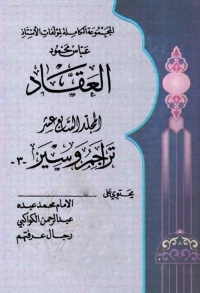 المجموعة الكاملة لمؤلفات الأستاذ
عباس محمود
العقاد
المجلد السابع عشر
تراجم وسير -٣-
يحتوي على
الامام محمد عبده
عبد الرحمن الكواكبي
رجال عرفتهم